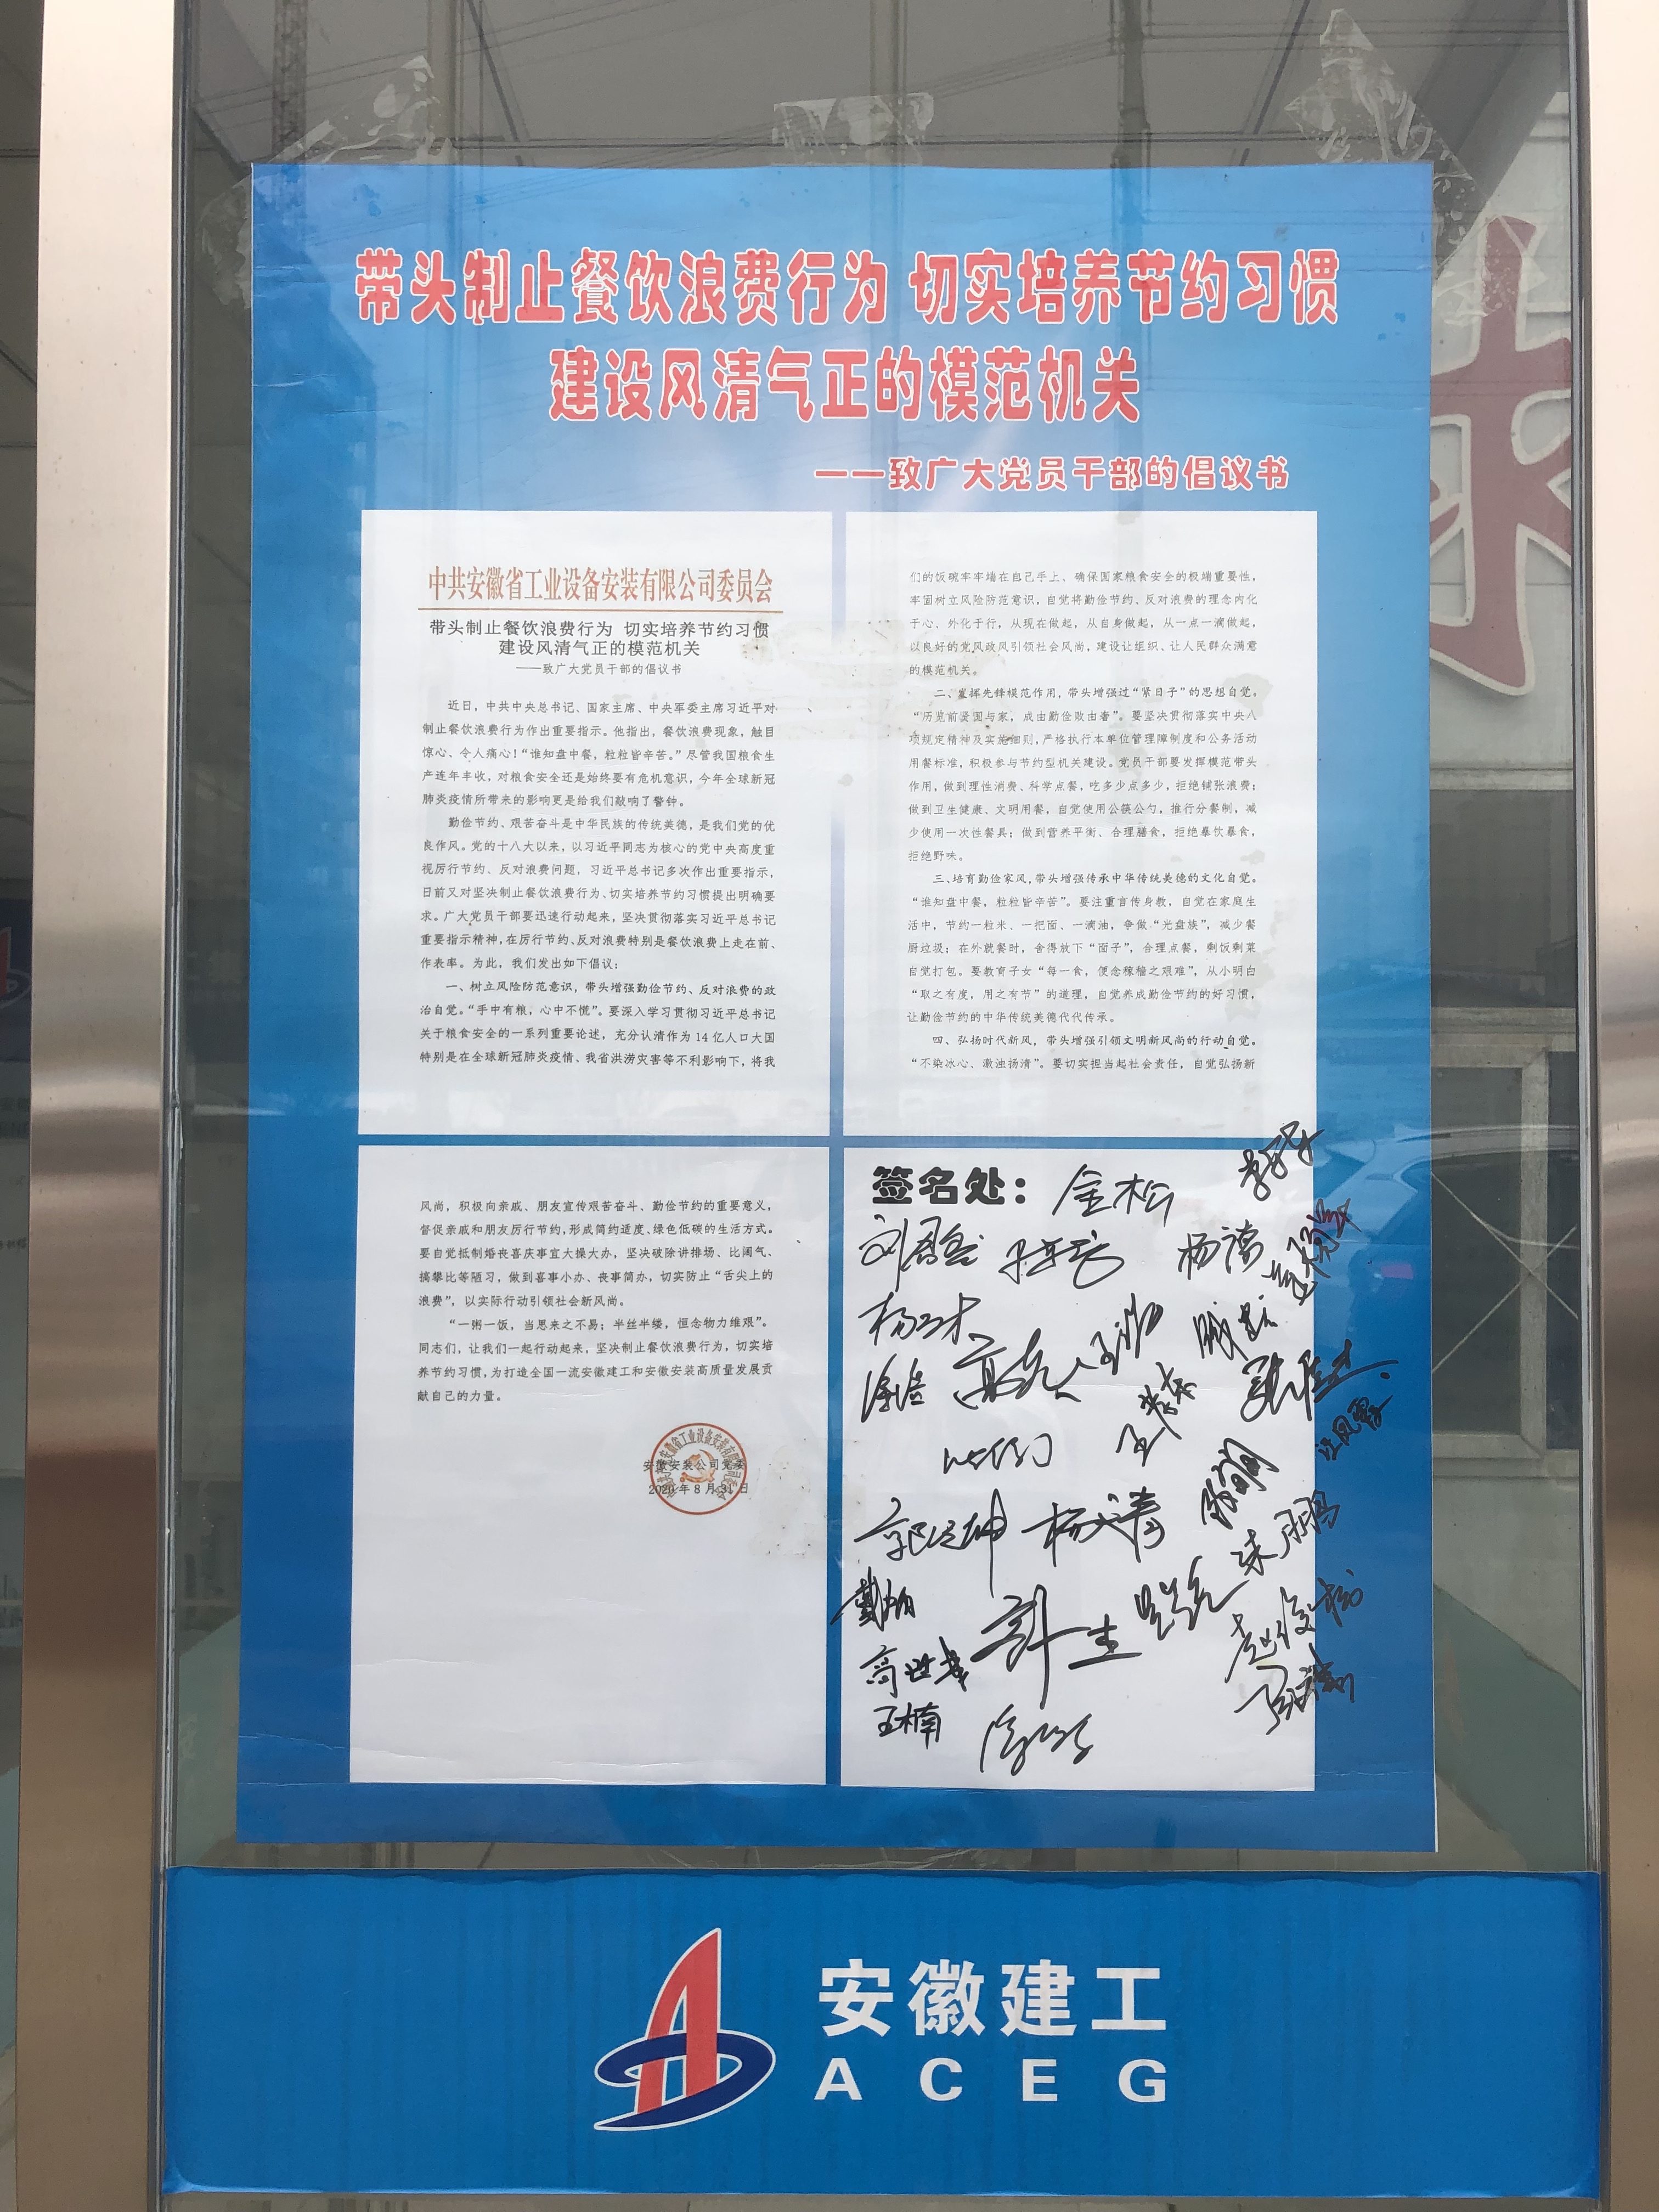 带头制止餐饮浪费行为 切实培养节约习惯
建设风清气正的模范机关
——致广大党员干部的倡议书
中共安徽省工业设备安装有限公司委员会
带头制止餐饮浪费行为 切实培养节约习惯
建设风清气正的模范机关
——致广大党员干部的倡议书
近日，中共中央总书记、国家主席、中央军委主席习近平对
制止餐饮浪费行为作出重要指示。他指出，餐饮浪费现象，触目
惊心、令人痛心！“谁知盘中餐，粒粒皆辛苦。”尽管我国粮食生
产连年丰收，对粮食安全还是始终要有危机意识，今年全球新冠
肺炎疫情所带来的影响更是给我们敲响了警钟。
勤俭节约、艰苦奋斗是中华民族的传统美德，是我们党的优
良作风。党的十八大以来，以习近平同志为核心的党中央高度重
视厉行节约、反对浪费问题，习近平总书记多次作出重要指示，
日前又对坚决制止餐饮浪费行为、切实培养节约习惯提出明确要
求。广大党员干部要迅速行动起来，坚决贯彻落实习近平总书记
重要指示精神，在厉行节约、反对浪费特别是餐饮浪费上走在前、
作表率。为此，我们发出如下倡议：
一、树立风险防范意识，带头增强勤俭节约、反对浪费的政
治自觉。“手中有粮，心中不慌”。要深入学习贯彻习近平总书记
关于粮食安全的一系列重要论述，充分认清作为 14 亿人口大国
特别是在全球新冠肺炎疫情、我省洪涝灾害等不利影响下，将我
们的饭碗牢牢端在自己手上、确保国家粮食安全的极端重要性，
牢固树立风险防范意识，自觉将勤俭节约、反对浪费的理念内化
于心、外化于行，从现在做起，从自身做起，从一点一滴做起，
以良好的党风政风引领社会风尚，建设让组织、让人民群众满意
的模范机关。
二、发挥先锋模范作用，带头增强过“紧日子”的思想自觉。
“历览前贤国与家，成由勤俭败由奢”。要坚决贯彻落实中央八
项规定精神及实施细则，严格执行本单位管理障制度和公务活动
用餐标准，积极参与节约型机关建设。党员干部要发挥模范带头
作用，做到理性消费、科学点餐，吃多少点多少，拒绝铺张浪费；
做到卫生健康、文明用餐，自觉使用公筷公勺，推行分餐制，减
少使用一次性餐具；做到营养平衡、合理膳食，拒绝暴饮暴食，
拒绝野味。
三、培育勤俭家风，带头增强传承中华传统美德的文化自觉。
“谁知盘中餐，粒粒皆辛苦”。要注重言传身教，自觉在家庭生
活中，节约一粒米、一把面、一滴油，争做“光盘族”，减少餐
厨垃圾；在外就餐时，舍得放下“面子”，合理点餐，剩饭剩菜
自觉打包。要教育子女“每一食，便念稼穑之艰难”，从小明白
“取之有度，用之有节”的道理，自觉养成勤俭节约的好习惯，
让勤俭节约的中华传统美德代代传承。
四、弘扬时代新风，带头增强引领文明新风尚的行动自觉。
“不染冰心、激浊扬清”。要切实担当起社会责任，自觉弘扬新
风尚，积极向亲戚、朋友宣传艰苦奋斗、勤俭节约的重要意义，
督促亲戚和朋友厉行节约，形成简约适度、绿色低碳的生活方式。
要自觉抵制婚丧喜庆事宜大操大办，坚决破除讲排场、比阔气、
搞攀比等陋习，做到喜事小办、丧事简办，切实防止“舌尖上的
浪费”，以实际行动引领社会新风尚。
“一粥一饭，当思来之不易；半丝半缕，恒念物力维艰”。
同志们，让我们一起行动起来，坚决制止餐饮浪费行为，切实培
养节约习惯，为打造全国一流安徽建工和安徽安装高质量发展贡
献自己的力量。
安徽安装公司党委
2020 年 8 月 31 日
签名处：
金松
杨文涛
朱鹏
高世幸
王楠
安徽建工
ACEG